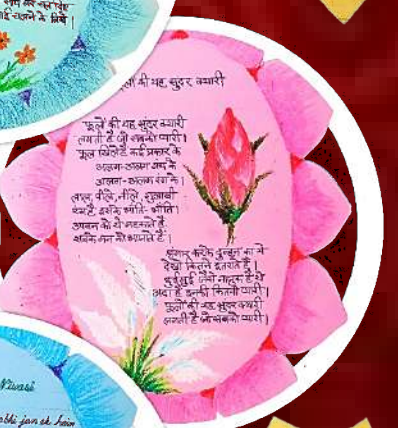 ई चलाने के लिये |
फूलों की यह सुंदर क्यारी
फूलों की यह सुंदर क्यारी
लगती है जो सबको प्यारी |
फूल खिले हैं कई प्रकार के
अलग-अलग रूप के
अलग-अलग रंग के |
लाल, पीले, नीले, गुलाबी
रंग हैं इनके भांति-भांति |
उपवन को ये महकाते हैं
सबके मन को भाते हैं |
श्रृंगार करके दुल्हन का ये
देखो कितने इतराते हैं |
छुईमुई जैसे नाजुक हैं ये
अदा है इनकी कितनी प्यारी |
फूलों की यह सुंदर क्यारी
लगती है जो सबको प्यारी |
Niwasi
abhi jan ek hain